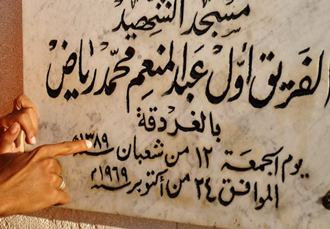 مسجد الشهيد
الفريق أول عبد المنعم محمد رياض
بالغردقة
يوم الجمعة ١٢ من شعبان سنة ١٣٨٩ هـ
الموافق ٢٤ من أكتوبر سنة ١٩٦٩ م